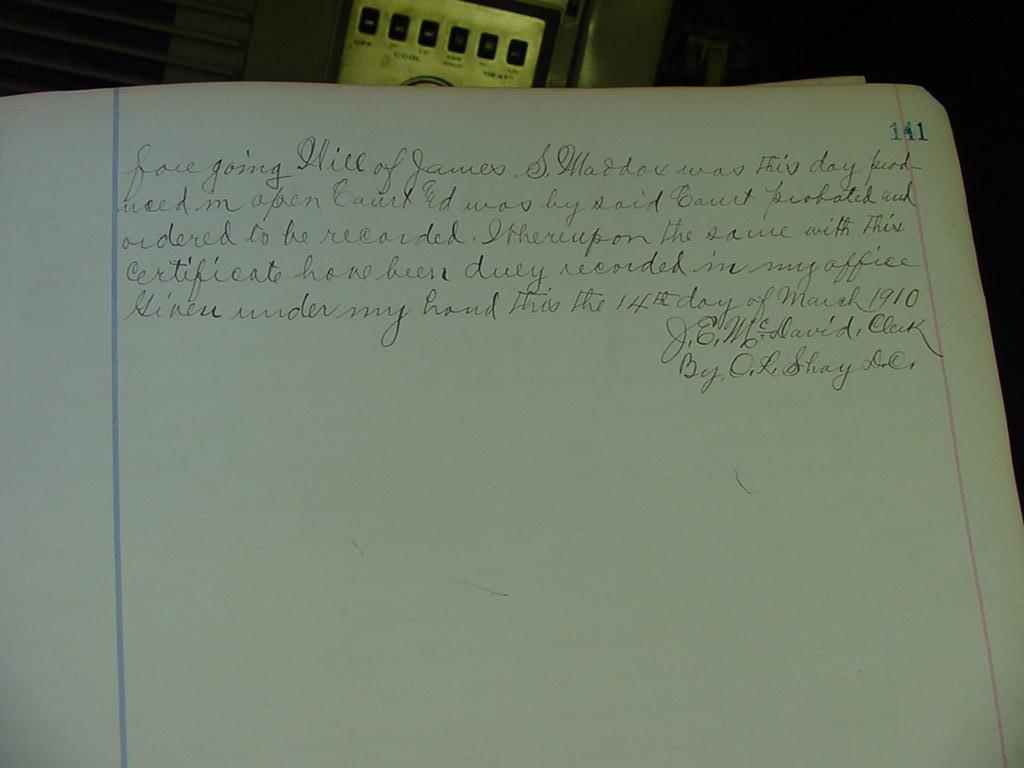 OFF HI LO HI LO
COOL HEAT
141
foregoing Will of James S. Maddox was this day prod-
uced in open Court &d was by said Court probated and
ordered to be recorded. Whereupon the same with this
Certificate have been duly recorded in my office
Given under my hand this the 14th day of March 1910
J. E. McDavid, Clerk
By O. L. Shay D.C.